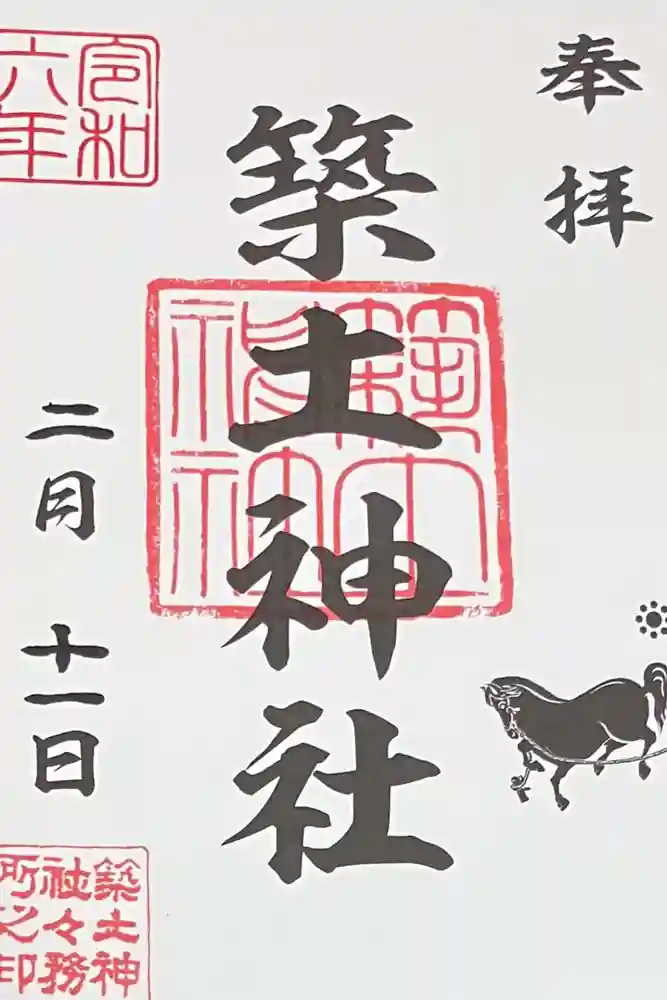 奉拝
築土神社
築土神社
令和
六年
二月十一日
築土神
社々務
所之印